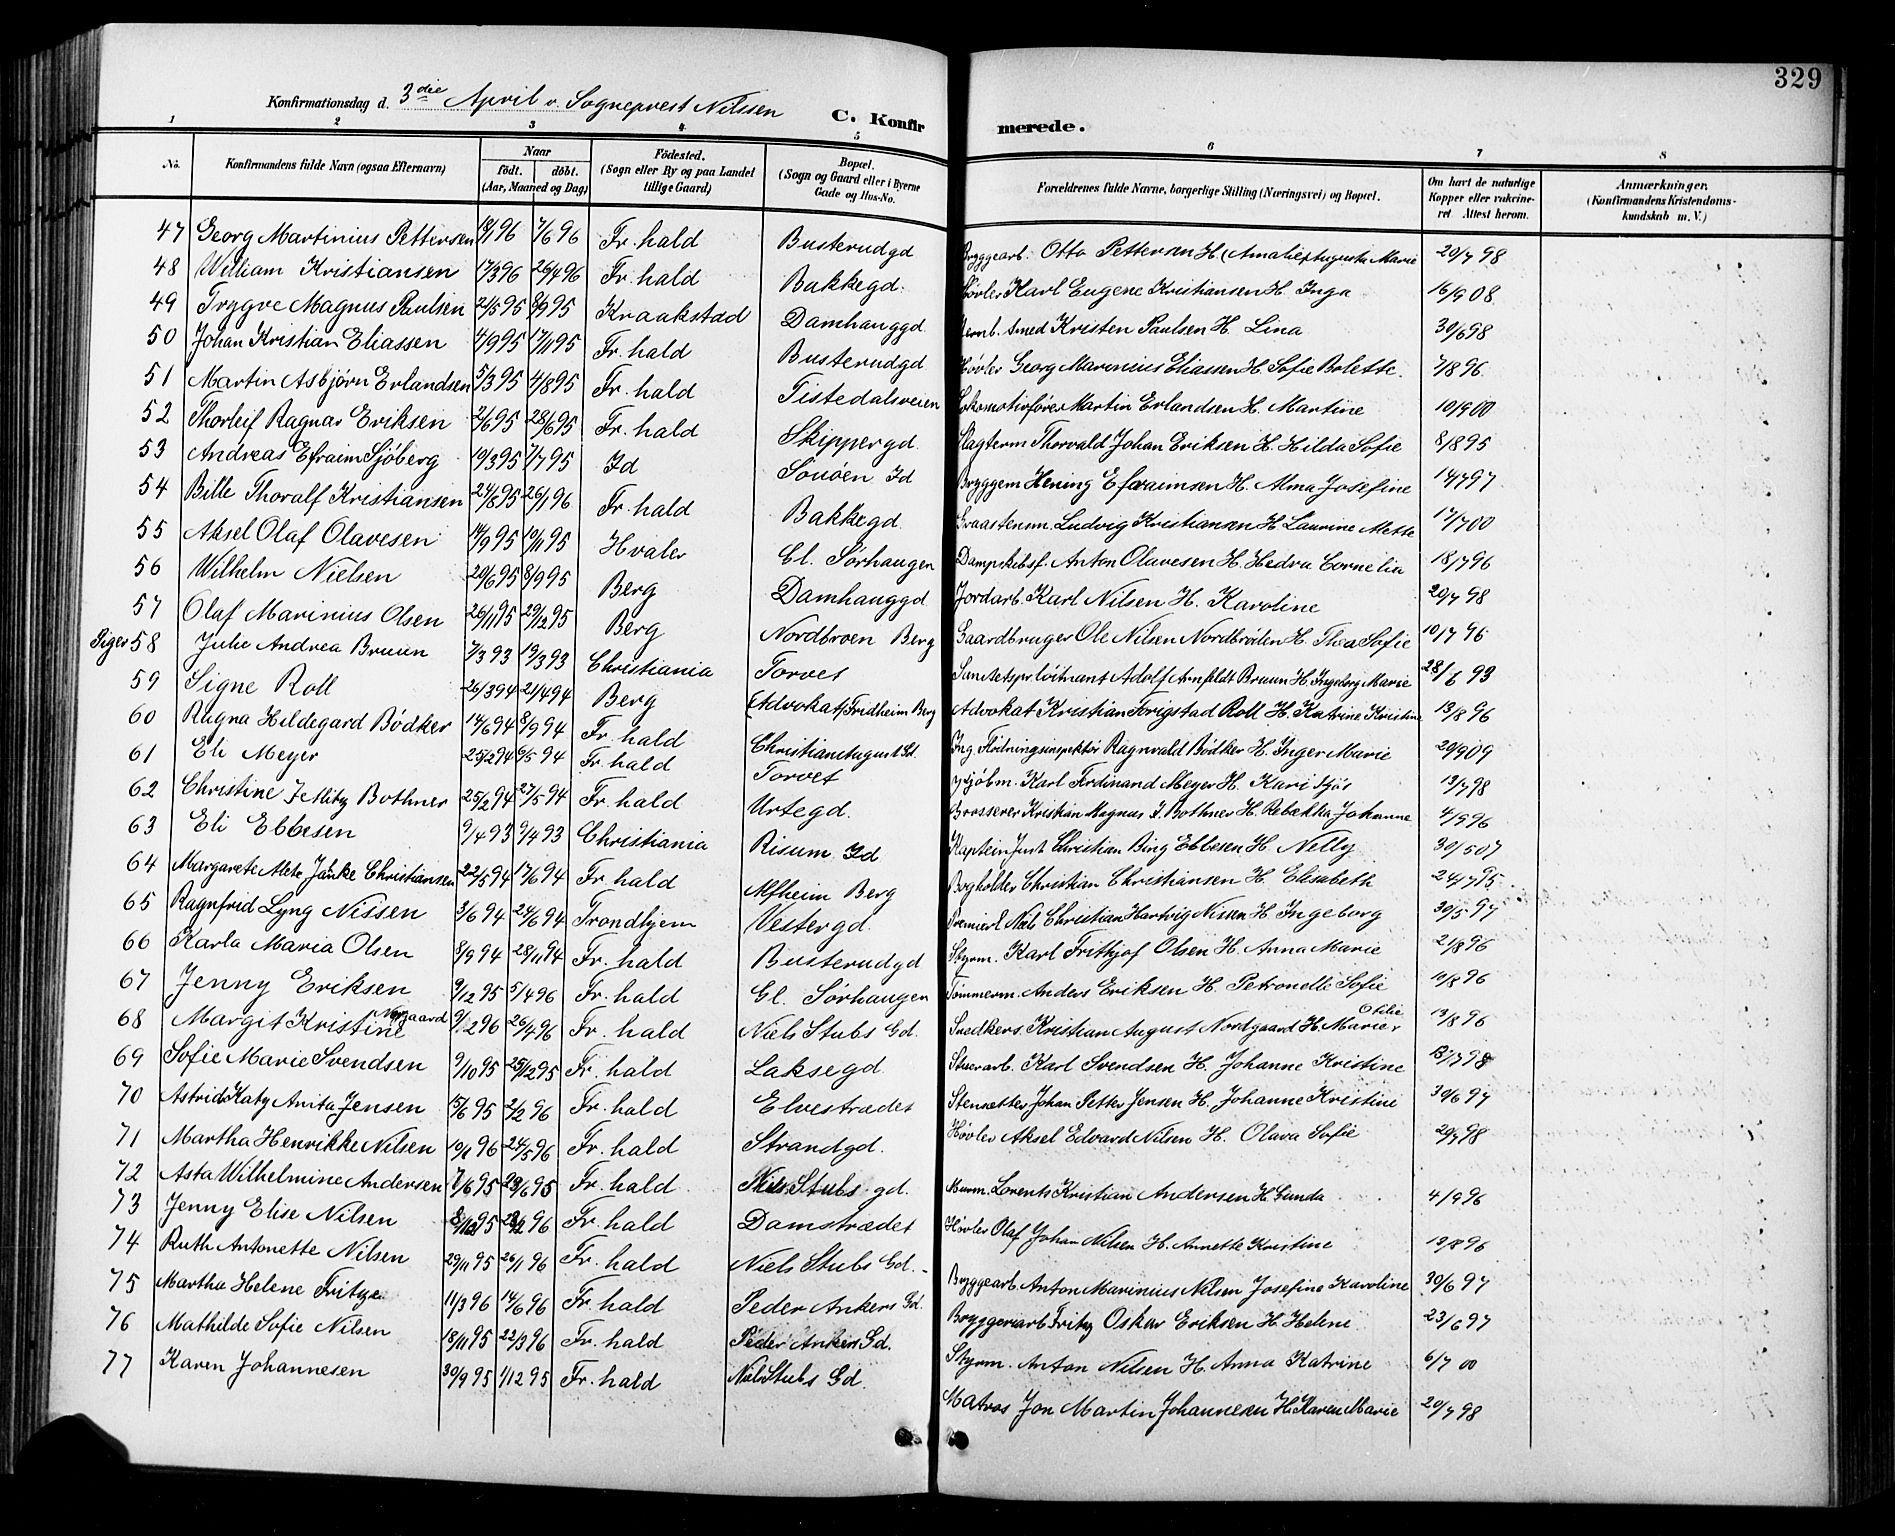 329
Konfirmationsdag d. 3die April v. Sogneprest Nilssen
C. Konfirmerede.
1 2 3 4 5 6 7 8
No. Konfirmandens fulde Navn (ogsaa Efternavn) Naar födt. döbt. (Aar, Maaned og Dag) Födested. (Sogn eller By og paa Landet tillige Gaard) Bopæl. (Sogn og Gaard eller i Byerne Gade og Hus-No. Forældrenes fulde Navne, borgerlige Stilling (Næringsvei) og Bopæl. Om havt de naturlige Kopper eller vakcineret. Attest herom. Anmærkninger. (Konfirmandens Kristendomskundskab m. V.)
47 Georg Martinius Pettersen 7/6 96 Fr. hald Busterudgd Bryggearb. Otto Pettersen H. Amalie Augusta Marie 20/7 98
48 William Kristiansen 17/3 96 26/4 96 Fr. hald Bakkegd. Høvler Karl Eugene Kristiansen H. Inga 16/9 08
49 Trygve Magnus Paulsen 2/5 95 8/9 95 Kraakstad Damhauggd. Kristen Paulsen H. Lina 30/6 98
50 Johan Kristian Eliassen 4/9 95 17/11 95 Fr. hald Busterudgd Høvler Georg Marinius Eliassen H. Sofie Bolette. 7/8 96
51 Martin Asbjørn Erlandsen 5/3 95 4/8 95 Fr. hald Tistedalsveien Lokomotivfører Martin Erlandsen H. Martine 10/9 00
52 Thorleif Ragnar Eriksen 2/6 95 28/6 95 Fr. hald Skippergd. Slagterm Thorvald Johan Eriksen H. Hilda Sofie 8/8 95
53 Andreas Efraim Sjöberg 19/3 95 7/7 95 Id Sauöen Id Bryggem Hening Efraimsen H. Alma Josefine 14/7 97
54 Bille Thoralf Kristiansen 24/8 95 26/1 96 Fr. hald Bakkegd. Graastensm. Ludvig Kristiansen H. Laurine Mette 17/7 00
55 Aksel Olaf Olavesen 14/9 95 10/11 95 Hvaler Gl. Sørhaugen Dampskibsf. Anton Olavesen H. Hedva Cornelia 18/7 96
56 Wilhelm Nielsen 29/6 95 8/9 95 Berg Damhauggd Jordarb. Karl Nilsen H. Karoline 20/7 98
57 Olaf Marinius Olsen 26/11 95 29/12 95 Berg Nordbroen Berg Gaardbruger Ole Nilsen Nordbröden H. Thea Sofie 10/7 96
Piger 58 Julie Andrea Bruun 7/3 93 19/3 93 Christiania Torvet Adolf Arnfeldt Bruun H. Ingeborg Marie 28/6 93
59 Signe Roll 26/3 94 21/4 94 Berg (Advokat) Fridheim Berg Advokat Kristian Forigstad Roll H. Katrine Kristine 13/8 96
60 Ragna Hildegard Bödker 14/6 94 8/9 94 Fr. hald Christian Augustsgd. Ing. Flödningsinspektör Ragnvald Bödker H. Inger Marie 29/9 09
61 Eli Meyer 25/2 94 6/5 94 Fr. hald Torvet Kjøbm. Karl Ferdinand Meyer H. Kari 13/7 98
62 Christine Bothner 25/2 94 27/5 94 Fr. hald Urtegd. Kristian Magnus J. Bothner H. Rebekka Johanne 4/9 96
63 Eli Ebbesen 9/4 93 Christiania Risum Id Kaptein Just Christian Bing Ebbesen H. Nelly 30/5 07
64 Margarete Mete Janke Christiansen 22/5 94 17/6 94 Fr. hald Alfheim Berg Bogholder Christian Christiansen H. Elisabeth 24/7 95
65 Ragnfrid Lyng Nissen 3/6 94 24/6 94 Trondhjem Vestergd. Premierl Niels Christian Hartvig Nissen H. Ingeborg 30/5 97
66 Karla Maria Olsen 8/9 94 28/11 94 Fr. hald Busterudgd Styrm. Karl Frithjof Olsen H. Anna Marie 21/8 96
67 Jenny Eriksen 9/12 95 5/4 96 Fr. hald Gl. Sørhaugen Tömmerm. Anders Eriksen H. Petronelle Sofie 11/8 96
68 Margit Kristine Norgaard 9/2 96 26/4 96 Fr. hald Niels Stubs Gd. Snedkers. Kristian August Nordgaard H. Marie Otilie 13/8 96
69 Sofie Marie Svendsen 9/10 95 25/12 95 Fr. hald Laksegd. Stuerarb. Karl Svendsen H. Johanne Kristine 13/7 98
70 Astrid Katy Anita Jensen 15/6 95 2/2 96 Fr. hald Elvestrædet Stensætter Johan Petter Jensen H. Johanne Kristine 30/6 97
71 Martha Henrikke Nilsen 19/1 96 24/5 96 Fr. hald Strandgd. Høvler Aksel Edvard Nilsen H. Olava Sofie 29/7 98
72 Asta Wilhelmine Andersen 7/6 95 29/6 95 Fr. hald Niels Stubs gd. Murm. Lorents Kristian Andersen H. Gunda 4/9 96
73 Jenny Elise Nilsen Fr. hald Damstrædet Høvler Olaf Johan Nilsen H. Annette Kristine 19/8 96
74 Ruth Antonette Nilsen 29/11 95 26/1 96 Fr. hald Niels Stubs Gd. Bryggearb. Anton Marinius Nilsen Josefine Karoline 30/6 97
75 Martha Helene Fritze 11/3 96 14/6 96 Fr. hald Peder Ankers Gd. Bryggeriarb Fritz Oskar Eriksen H Helene 23/6 97
76 Mathilde Sofie Nilsen 18/11 95 22/3 96 Fr. hald Peder Ankers Gd. Styrm. Anton Nilsen H. Anna Katrine 6/7 00
77 Karen Johannesen 30/9 95 1/12 95 Fr. hald Niels Stubs Gd. Matros Jon Martin Johannesen H. Karen Marie 20/7 98